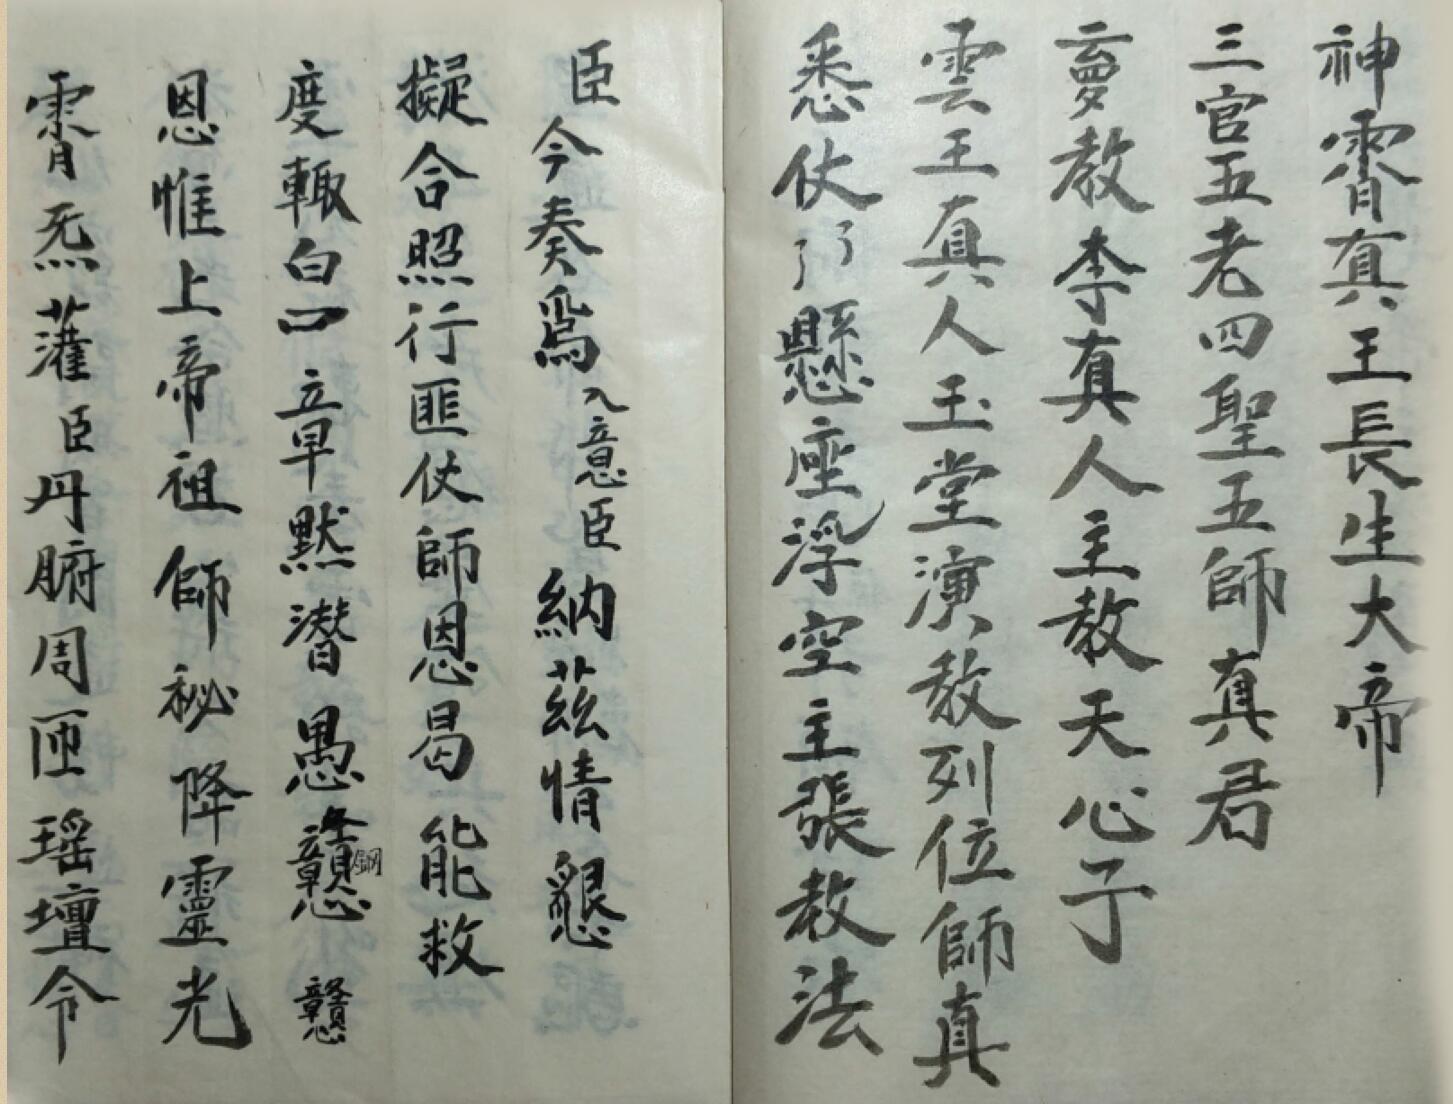 神霄真王長生大帝
三官五老四聖五師真君
教李真人主教天心子
雲王真人玉堂演教列位師真
悉仗懸座浮空主張教法
臣今奏爲入意臣納茲情懇
擬合照行匪仗師恩曷能救
度輙白立章默潛愚戇鋼戇
恩惟上帝祖師秘降靈光
霄炁灌臣丹腑周匝瑶壇令